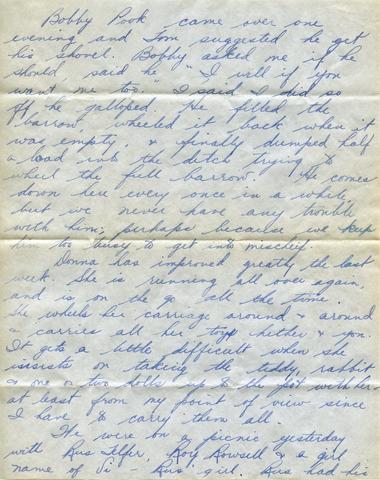 Bobby Pook came over one
evening and Tom suggested he get
his shovel. Bobby asked me if he
should, said he "I will if you
want me too." I said I did so
off he galloped. He filled the
barrow, wheeled it back when it
was empty, & finally dumped half
a load into the ditch trying to
wheel the full barrow. He comes
down here every once in a while,
but we never have any trouble
with him; perhaps because we keep
him too busy to get into mischief.
Donna has improved greatly the last
week. She is running all over again,
and is on the go all the time.
She wheels her carriage around & around
& carries all her toys hither & yon.
It gets a little difficult when she
isisists on taking the teddy, rabbit
& one or two dolls up to the pot with her
at least from my point of view since
I have to carry them all.
We were on a picnic yesterday
with Rus Telfer, Roy Rowsell & a girl
name of Vi - Rus' girl. Rus had his